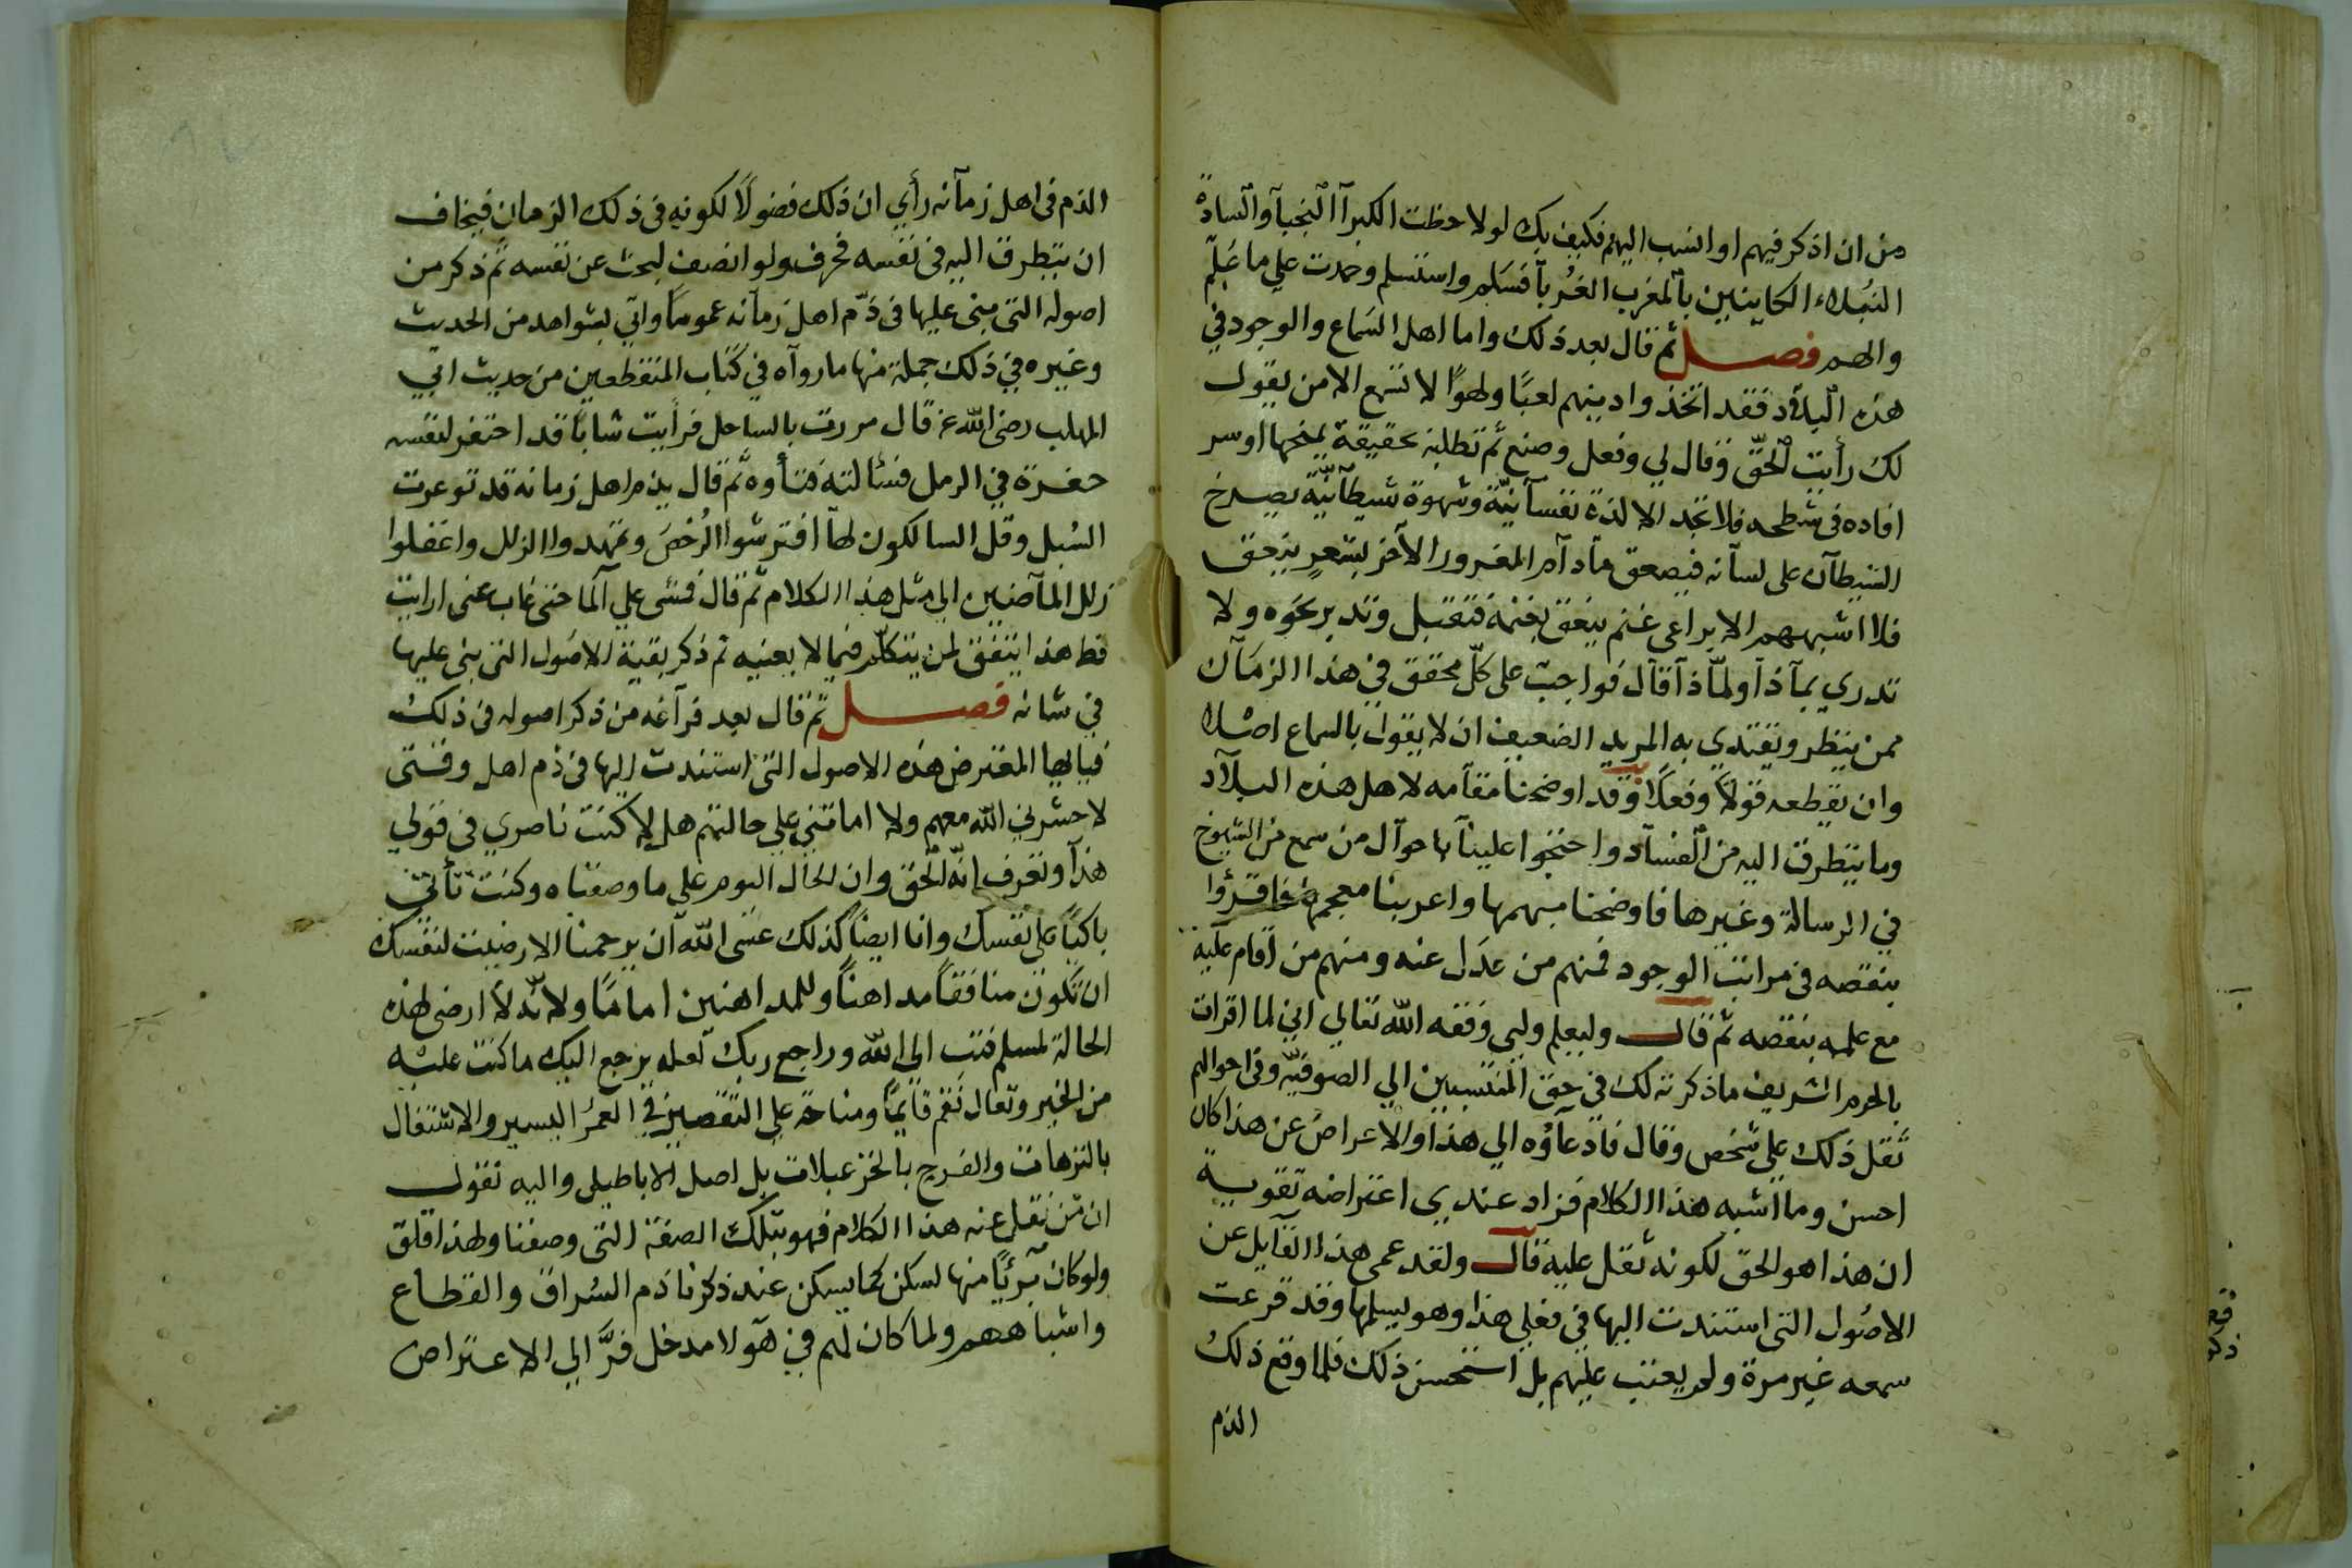 من ان اذكر فيهم او انسب اليهم فكيف بك لو لاحظت الكبرآ النجبآ والسادة
النبلاء الكاينين بالمغرب الغربآ فسلم واستسلم وحمدت علي ما علم
والهم فصل ثم قال بعد ذلك واما اهل السماع والوجود في
هذه البلاد فقد اتخذوا دينهم لعبًا ولهوًا لا تسمع الا من يقول
لك رأيت الحق وقال لي وفعل وصنع ثم تطلبه بحقيقة يمنحها او سر
افاده في شطحه فلا تجد الا لذة نفسآنيّة وشهوة شيطآنيّة يصرخ
الشيطآن على لسآنه فيصعق مآدآم المغرور الآخر بشعرٍ ينعق
فلا اشبههم الا براعي غنم ينعق بغنمه فتقبل وتدبر نحوه ولا
تدري بمآذآ ولمآذآ قال فواجب على كلّ محقق في هذا الزمآن
ممن ينظر ويقتدي به المريد الضعيف ان لا يقول بالسماع اصلا
وان يقطعه قولًا وفعلًا وقد اوضحنا مقآمه لاهل هذه البلآد
وما يتطرق اليه من الفسآد واحتجوا علينآ باحوآل من سمع من الشيوخ
في الرسالة وغيرها فاوضحنا مبهمها واعربنا معجمها فاقرؤا
بنقصه في مراتب الوجود فمنهم من عدل عنه ومنهم من اقام عليه
مع علمه بنقصه ثم قال وليعلم وليي وفقه الله تعالي اني لما اقرات
بالحرم الشريف ما ذكرته لك في حق المنتسبين الي الصوفيّه وفي احوالهم
ثقل ذلك علي شخص وقال ما دعآؤه الي هذا والاعراض عن هذا كان
احسن وما اشبه هذا الكلام فزاد عندي اعتراضه تقوية
ان هذا هو الحق لكونه ثقل عليه قال ولقد عمي هذا القآيل عن
الاصول التي استندت اليها في فعلي هذا وهو يسلمها وقد قرعت
سمعه غير مرة ولم يعتب عليهم بل استحسن ذلك فلما وقع ذلك
الذم
الذم في اهل زمآنه رأي ان ذلك فضولًا لكونه في ذلك الزمان فيخاف
ان يتطرق اليه في نفسه فحرف ولو انصف لبحث عن نفسه ثم ذكر من
اصوله التي مبنى عليها في ذمّ اهل زمآنه عمومًا واتي بشواهد من الحديث
وغيره في ذلك جملة منها ما روآه في كتاب المنقطعين من حديث ابي
المهلب رضي الله عنه قال مررت بالساحل فرأيت شابًا قد احتفر لنفسه
حفرة في الرمل فسئالته فتأوه ثم قال يذم اهل زمانه قد توعرت
السبل وقل السالكون لهآ افترشوا الرخص وتمهدوا الزلل واعتلوا
زلل المآضين الي مثل هذا الكلام ثم قال فمشى علي المآ حتى غاب عني ارايت
قط هذا يتفق لمن يتكلّم فيما لا يعنيه ثم ذكر بقية الاصول التي بني عليها
في شانه فصل ثم قال بعد فرآغه من ذكر اصوله في ذلك
فيايها المعترض هذه الاصول التي استندت اليها في ذم اهل وقتى
لا حشرني الله معهم ولا اماتني علي حالتهم هل لا كنت ناصري في قولي
هذآ وتعرف انّه الحق وان الحال اليوم علي ما وصفناه وكنت تأتي
باكيًا على نفسك وانا ايضًا كذلك عسى الله آن يرحمنا الا رضيت لنفسك
ان تكون منافقًا مداهنًا وللمداهنين امامًا ولا بدّ لا ارضى لهذه
الحالة لمسلم فتب الى الله وراجع ربك لعله يرجع اليك ما كنت عليه
من الخير وتعال نقم قايمًا ومناحة علي التقصير في العمر اليسير والاشتغال
بالترهات والفرح بالخزعبلات بل اصل الاباطيل واليه نقول
ان من نقل عنه هذا الكلام فهو بتلك الصفة التي وصفنا ولهذا قلق
ولو كان بريًا منها لسكن كما يسكن عند ذكرنا ذم السراق والقطاع
واشباههم ولما كان لهم في هؤلا مدخل فرّ الي الاعتراض